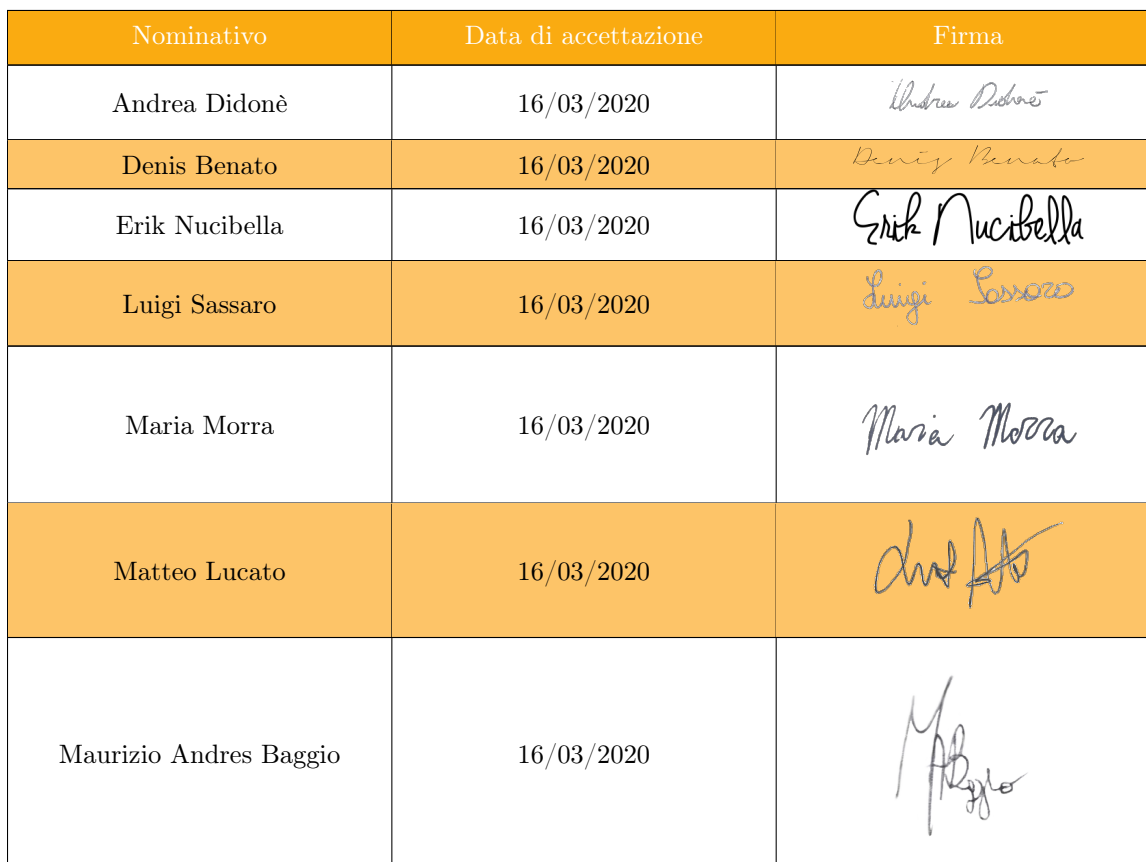 Nominativo Data di accettazione Firma
Andrea Didonè 16/03/2020 Andrea Didonè
Denis Benato 16/03/2020 Denis Benato
Erik Nucibella 16/03/2020 Erik Nucibella
Luigi Sassaro 16/03/2020 Luigi Sassaro
Maria Morra 16/03/2020 Maria Morra
Matteo Lucato 16/03/2020
Maurizio Andres Baggio 16/03/2020